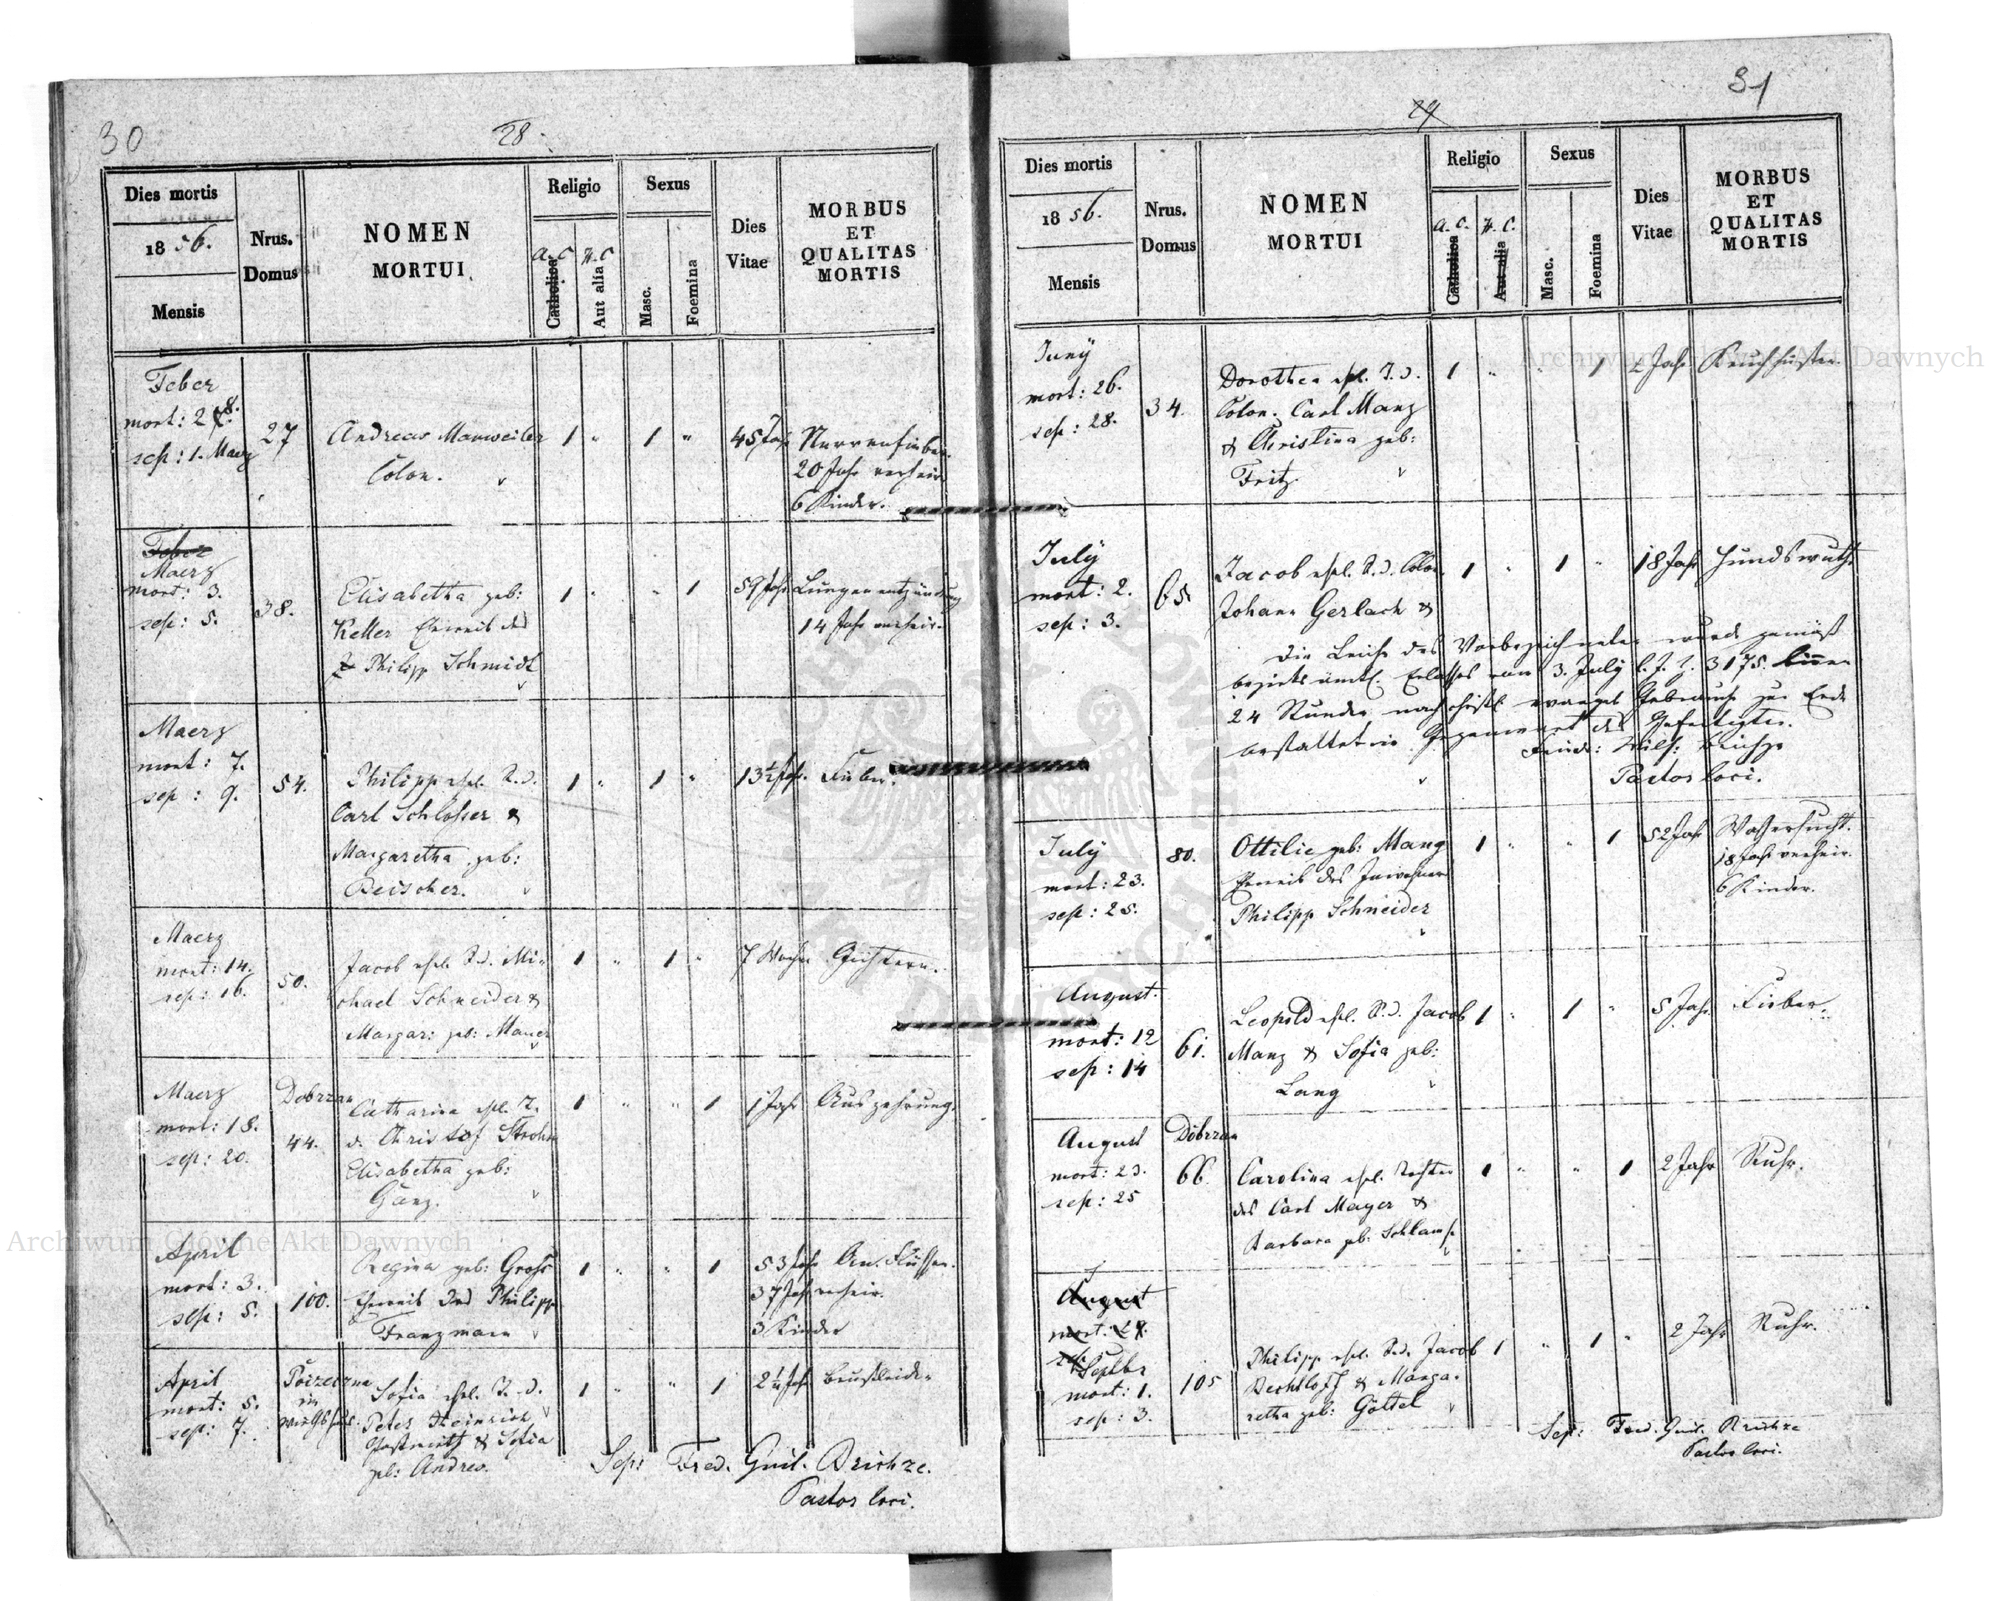 30
28.
Dies mortis
1856.
Mensis
Nrus.
Domus
NOMEN
MORTUI
Religio
A. C
H. C
Catholica
Aut alia
Sexus
Masc.
Foemina
Dies
Vitae
MORBUS
ET
QUALITAS
MORTIS
Feber
mort: 28.
sep: 1. Maerz
27
Andreas Manweiler
Colon.
1 " 1 "
45 Jahr
Nervenfieber.
20 Jahr verheir.
6 Kinder.
Feber
Maerz
mort: 3.
sep: 5.
38.
Elisabetha geb:
Keller Eheweib des
Philipp Schmidt
1 " " 1
59 Jahr
Lungenentzündung
14 Jahr verheir.
Maerz
mort: 7.
sep: 9.
54.
Philipp ehel. S. d.
Carl Schlößer &
Margaretha geb:
Beischer.
1 " 1 "
13½ Jahr.
Fieber.
Maerz
mort: 14.
sep: 16.
50.
Jacob ehel. S. d. Mi-
chael Schneider &
Margar: geb: Mauer
1 " 1 "
7 Wochen
Maerz
mort: 18.
sep: 20.
Dobrzan
44.
Catharina ehel. T.
d. Christof Strohm
Elisabetha geb:
Ganz.
1 " " 1
1 Jahr
Auszehrung.
April
mort: 3.
sep: 5.
100.
Regina geb: Groß
Eheweib des Philipp
Franzmann
1 " " 1
53 Jahr
37 Jahr verheir.
3 Kinder
April
mort: 5.
sep: 7.
in
Wirthshaus.
Sofia ehel. T. d.
Peter Heinrich
& Sofia
geb: Andres.
1 " " 1
2½ Jahr
Brustleiden
Sep: Fred. Guil.
Pastor loci.
31
29
Dies mortis
1856.
Mensis
Nrus.
Domus
NOMEN
MORTUI
Religio
A. C.
H. C.
Catholica
Aut alia
Sexus
Masc.
Foemina
Dies
Vitae
MORBUS
ET
QUALITAS
MORTIS
Juny
mort: 26.
sep: 28.
34.
Dorothea ehel. T. d.
Colon. Carl Manz
& Christina geb:
Fritz.
1 " " 1
Jahr
Keuchhusten.
July
mort: 2.
sep: 3.
65
Jacob ehel. S. d. Colon.
Johann Gerlach &
1 " 1 "
18 Jahr
Hundswuth.
Die Leiche des Vorbezeichneten wurde gemäß
bezirksämtl. Erlasses vom 3. July l. J. Z. 3175. binnen
24 Stunden nach christl. evangel. Gebrauche zur Erde
bestattet in Gegenwart des Gefertigten.
Pastor loci.
July
mort: 23.
sep: 25.
80.
Ottilie geb: Mang
Eheweib des Inwohner
Philipp Schneider
1 " " 1
52 Jahr
Wassersucht.
18 Jahr verheir.
6 Kinder.
August.
mort: 12
sep: 14
61.
Leopold ehel. S. d. Jacob
Manz & Sofia geb:
Lang
1 " 1 "
5 Jahr
Fieber.
August
mort: 23.
sep: 25
Dobrzan
66.
Carolina ehel. Tochter
des Carl Mayer &
Barbara geb: Schlamp
1 " " 1
2 Jahr
Ruhr.
August
mort: 29.
Septbr
mort: 1.
sep: 3.
105
Philipp ehel. S. d. Jacob
Bechtloff & Marga-
retha geb: Göttel
1 " 1 "
2 Jahr
Ruhr.
Sep: Fred. Guil.
Pastor loci.
Archiwum Główne Akt Dawnych
Archiwum Główne Akt Dawnych